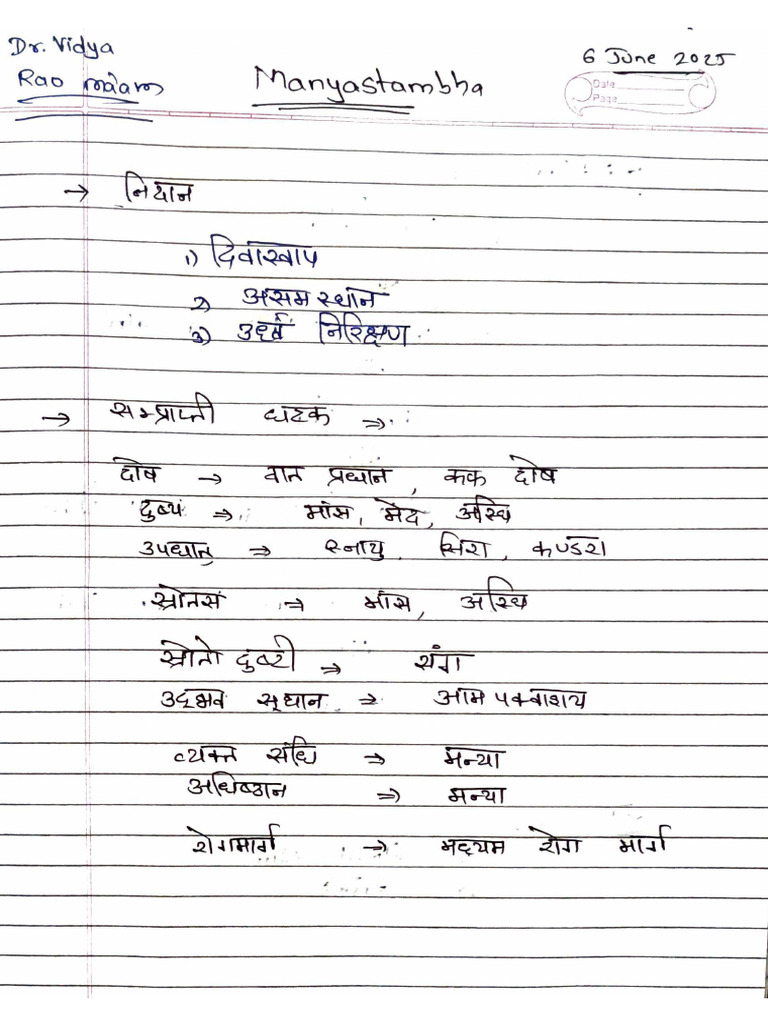 Dr. Vidya
Rao ma'am
Manyastambha
6 June 2025
Date
Page
→ निदान
1) दिवास्वाप
2) असम स्थान
3) उर्ध्व निरिक्षण
→ सम्प्राप्ती घटक ⇒
दोष → वात प्रधान, कफ दोष
दुष्य ⇒ मांस, मेद, अस्थि
उपधातु ⇒ स्नायु, सिरा, कण्डरा
स्रोतस ⇒ मांस, अस्थि
स्रोतो दुष्टी ⇒ संग
उद्भव स्थान ⇒ आम पक्वाशय
व्यक्त संधि ⇒ मन्या
अधिष्ठान ⇒ मन्या
रोगमार्ग ⇒ मध्यम रोग मार्ग